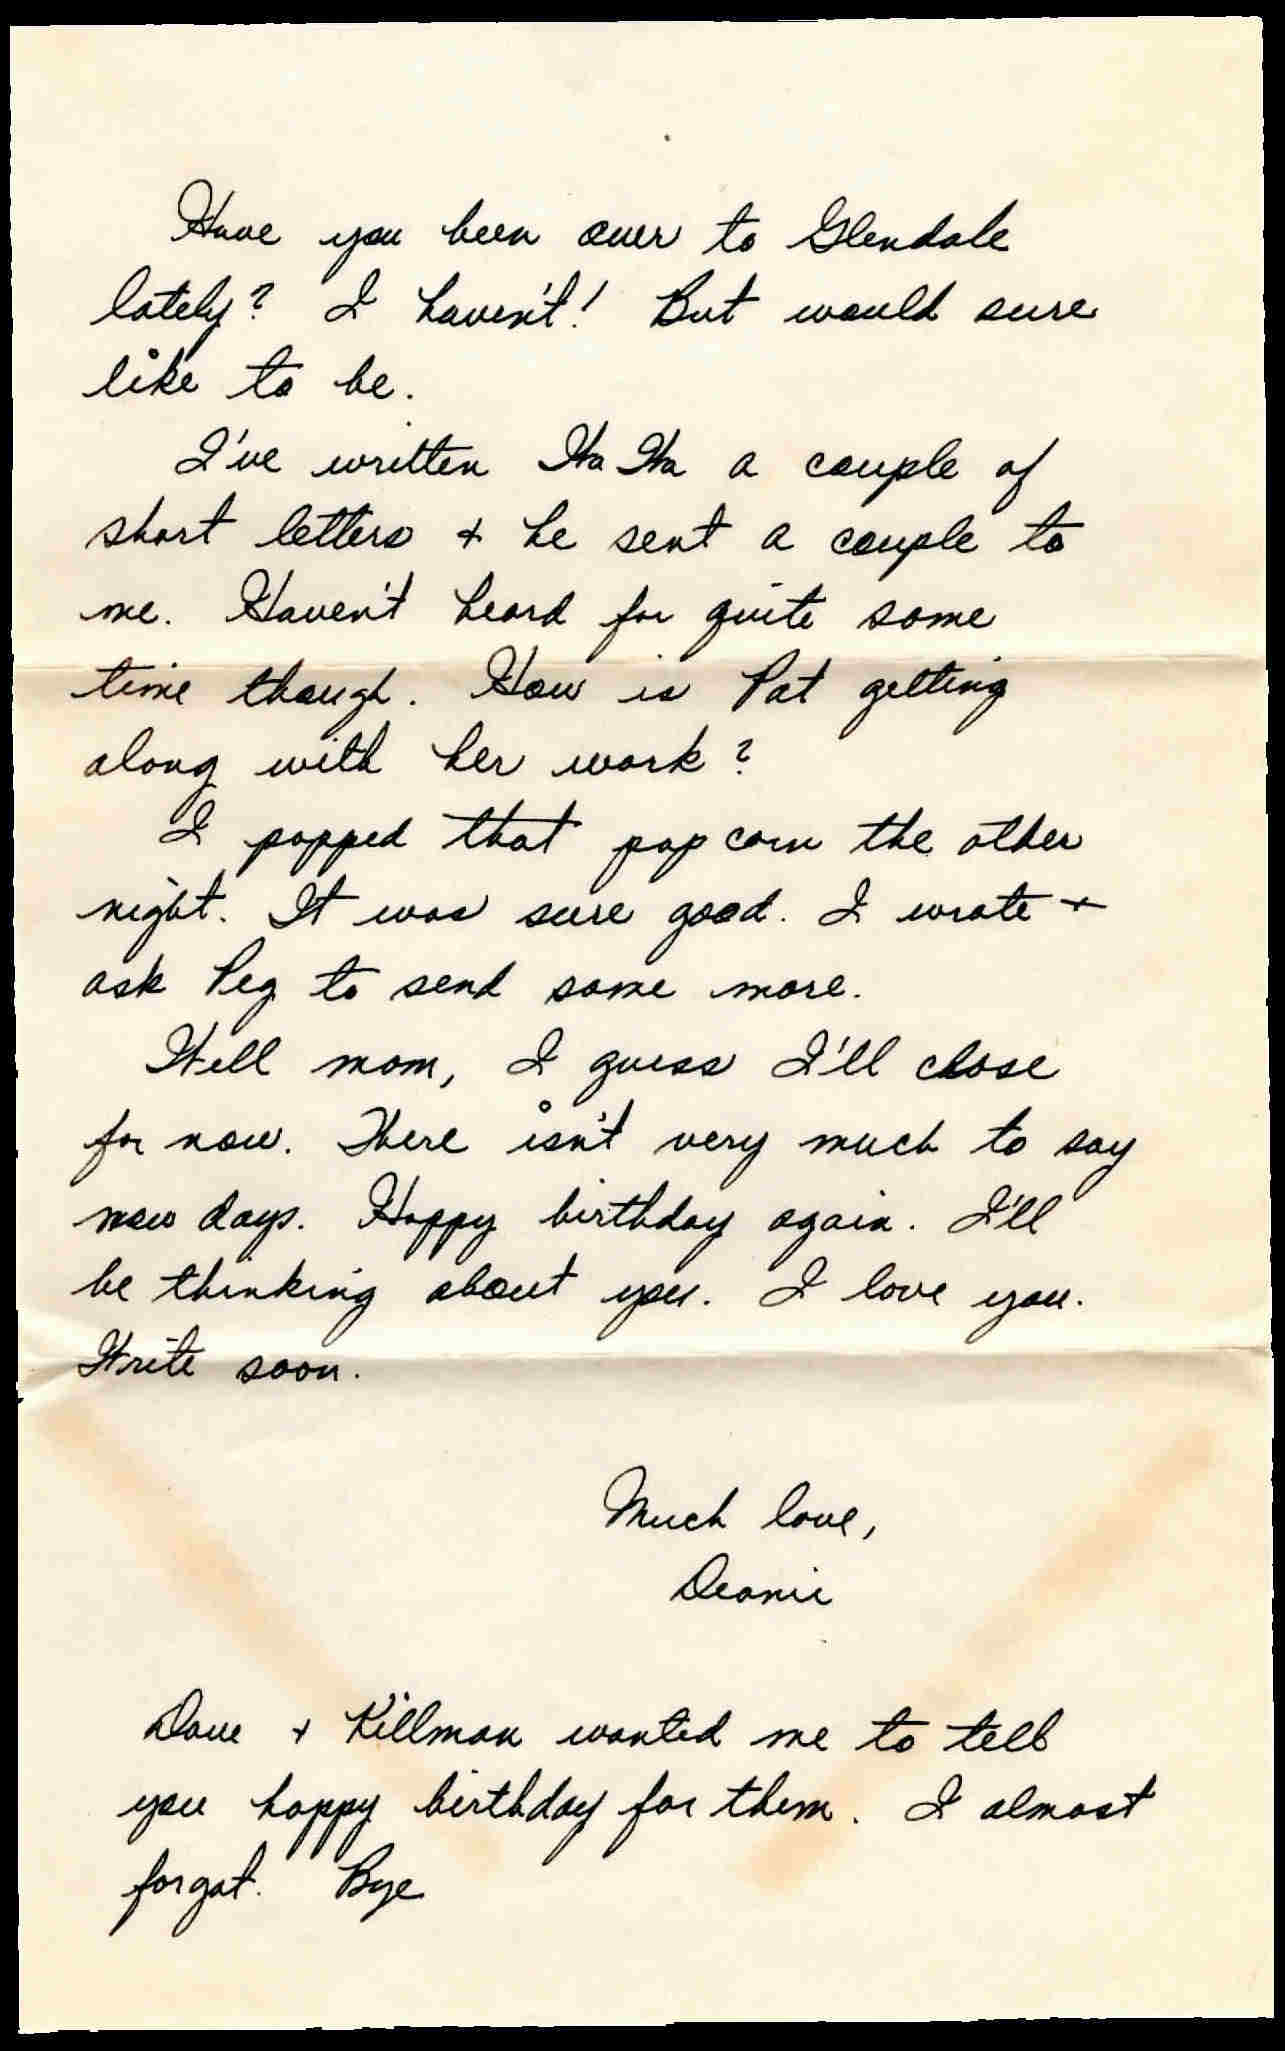 Have you been over to Glendale
lately? I haven't! But would sure
like to be.
I've written Ha Ha a couple of
short letters + he sent a couple to
me. Haven't heard for quite some
time though. How is Pat getting
along with her work?
I popped that pop corn the other
night. It was sure good. I wrote +
ask Peg to send some more.
Well mom, I guess I'll close
for now. There isn't very much to say
now days. Happy birthday again. I'll
be thinking about you. I love you.
Write soon.
Much love,
Deanie
Dave + Killman wanted me to tell
you happy birthday for them. I almost
forgot. Bye